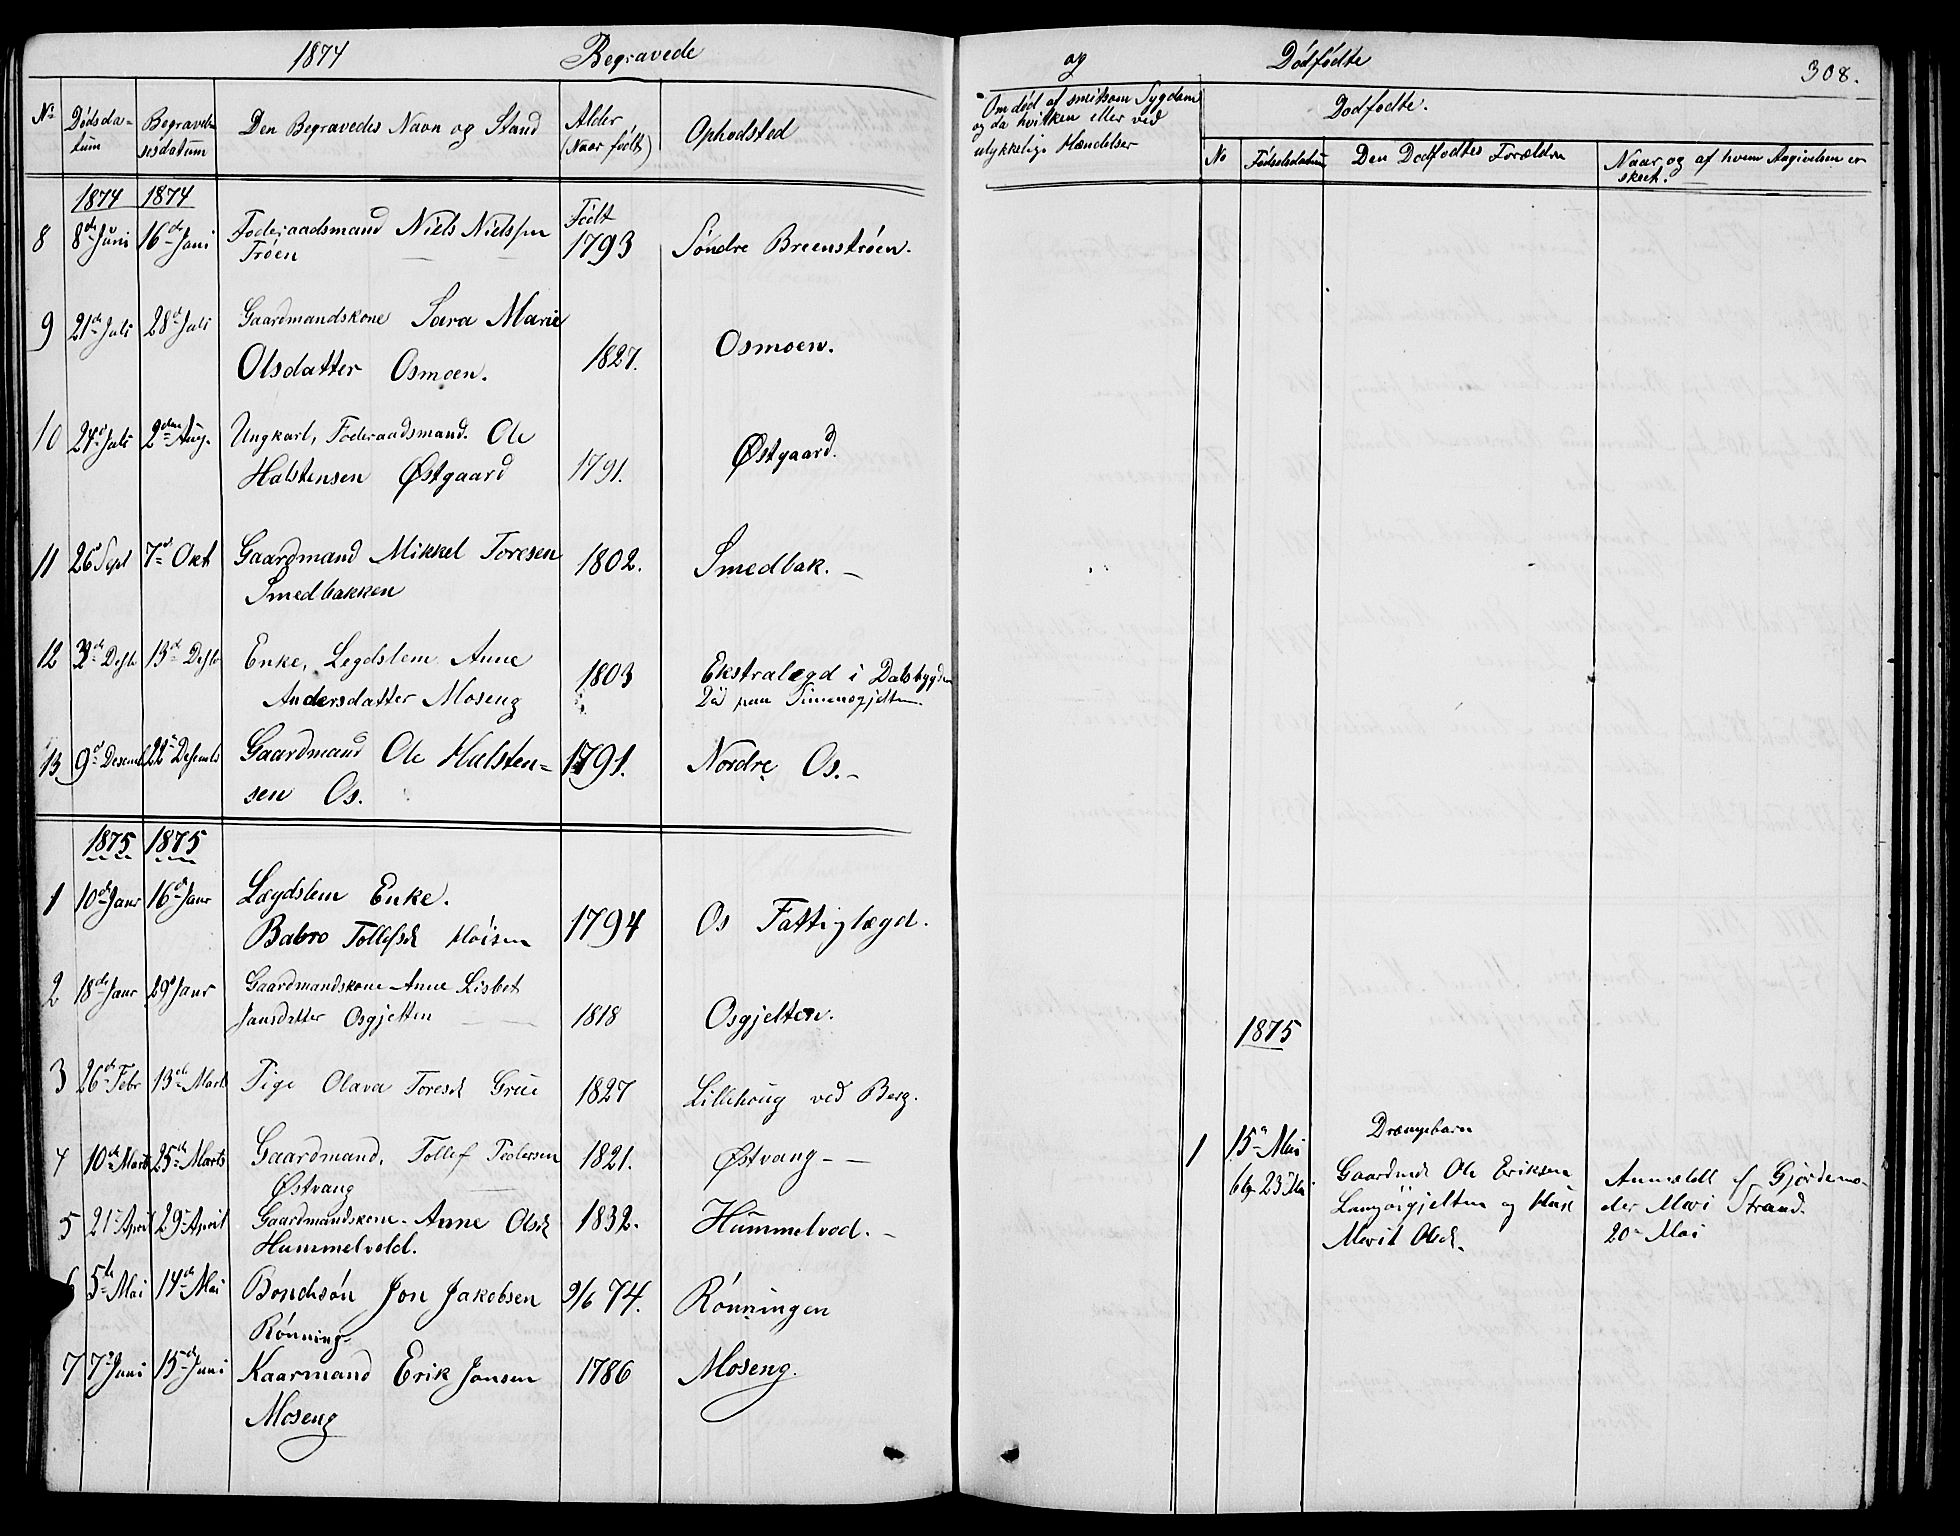 1874 Begravede
No Dødsdatum Begravelsesdatum Den Begravedes Navn og Stand Alder (Naar født) Opholdsted
1874 1874
8 8de Juni 16de Juni Foderaadsmand Niels Nielsen Født 1793 Søndre Breenstrøen.
Trøen
9 21de Juli 28de Juli Gaardmandskone Sara Marie
Olsdatter Osmoen. 1827. Osmoen.
10 24de Juli 2den Aug. Ungkarl, Foderaadsmand. Ole
Halstensen Østgaard 1791. Østgaard.
11 26 Sept 7de Okt Gaardmand Mikkel Toresen 1802. Smedbak. —
Smedbakken
12 Desbr 13de Desbr Enke, Legdslem Anne 1803 Ekstralægd i Dalsbygden
Andersdatter Moseng Død paa
13 9de Desemb 22de Desemb Gaardmand Ole Halsten- 1791. Nordre Os.—
sen Os.
1875 1875
1 10de Janr 16de Janr Lægdslem Enke.
Babro Tollefsd Moisen 1794 Os Fattiglægd.
2 18de Janr 29de Janr Gaardmandskone Anne Lisbet
Jansdatter Osgjelten 1818 Osgjelten.
3 26de Febr 13de Marts Pige Olava Toresd Grue 1827 Lillehoug ved Berg.
4 10de Marts 25de Marts Gaardmand, Tollef Pedersen 1821. Østvang — —
Østvang
5 21de April 29de April Gaardmandskone Anne Olsd 1832. Hummelvod. —
Hummelvold.
6 5de Mai 14de Mai Bondesøn Jon Jakobsen 9/6 74. Rønningen
Rønning
7 7de Juni 15de Juni Kaarmand Erik Jonsen 1786 Moseng.
Moseng
og Dødfødte 308.
Om død af smitsom Sygdom
og da hvilken eller ved
ulykkelige Hændelser
Dødfødte.
No Fødselsdatum Den Dødfødtes Forældre Naar og af hvem Angivelsen er
skeet.
1875
1 15de Mai Drængebarn
bg. 23 Mai Gaardmd Ole Eriksen Anmeldt af Gjordemo-
Langøigjelten og Hus der Mari Strand.
Marit Olsd. 20de Mai